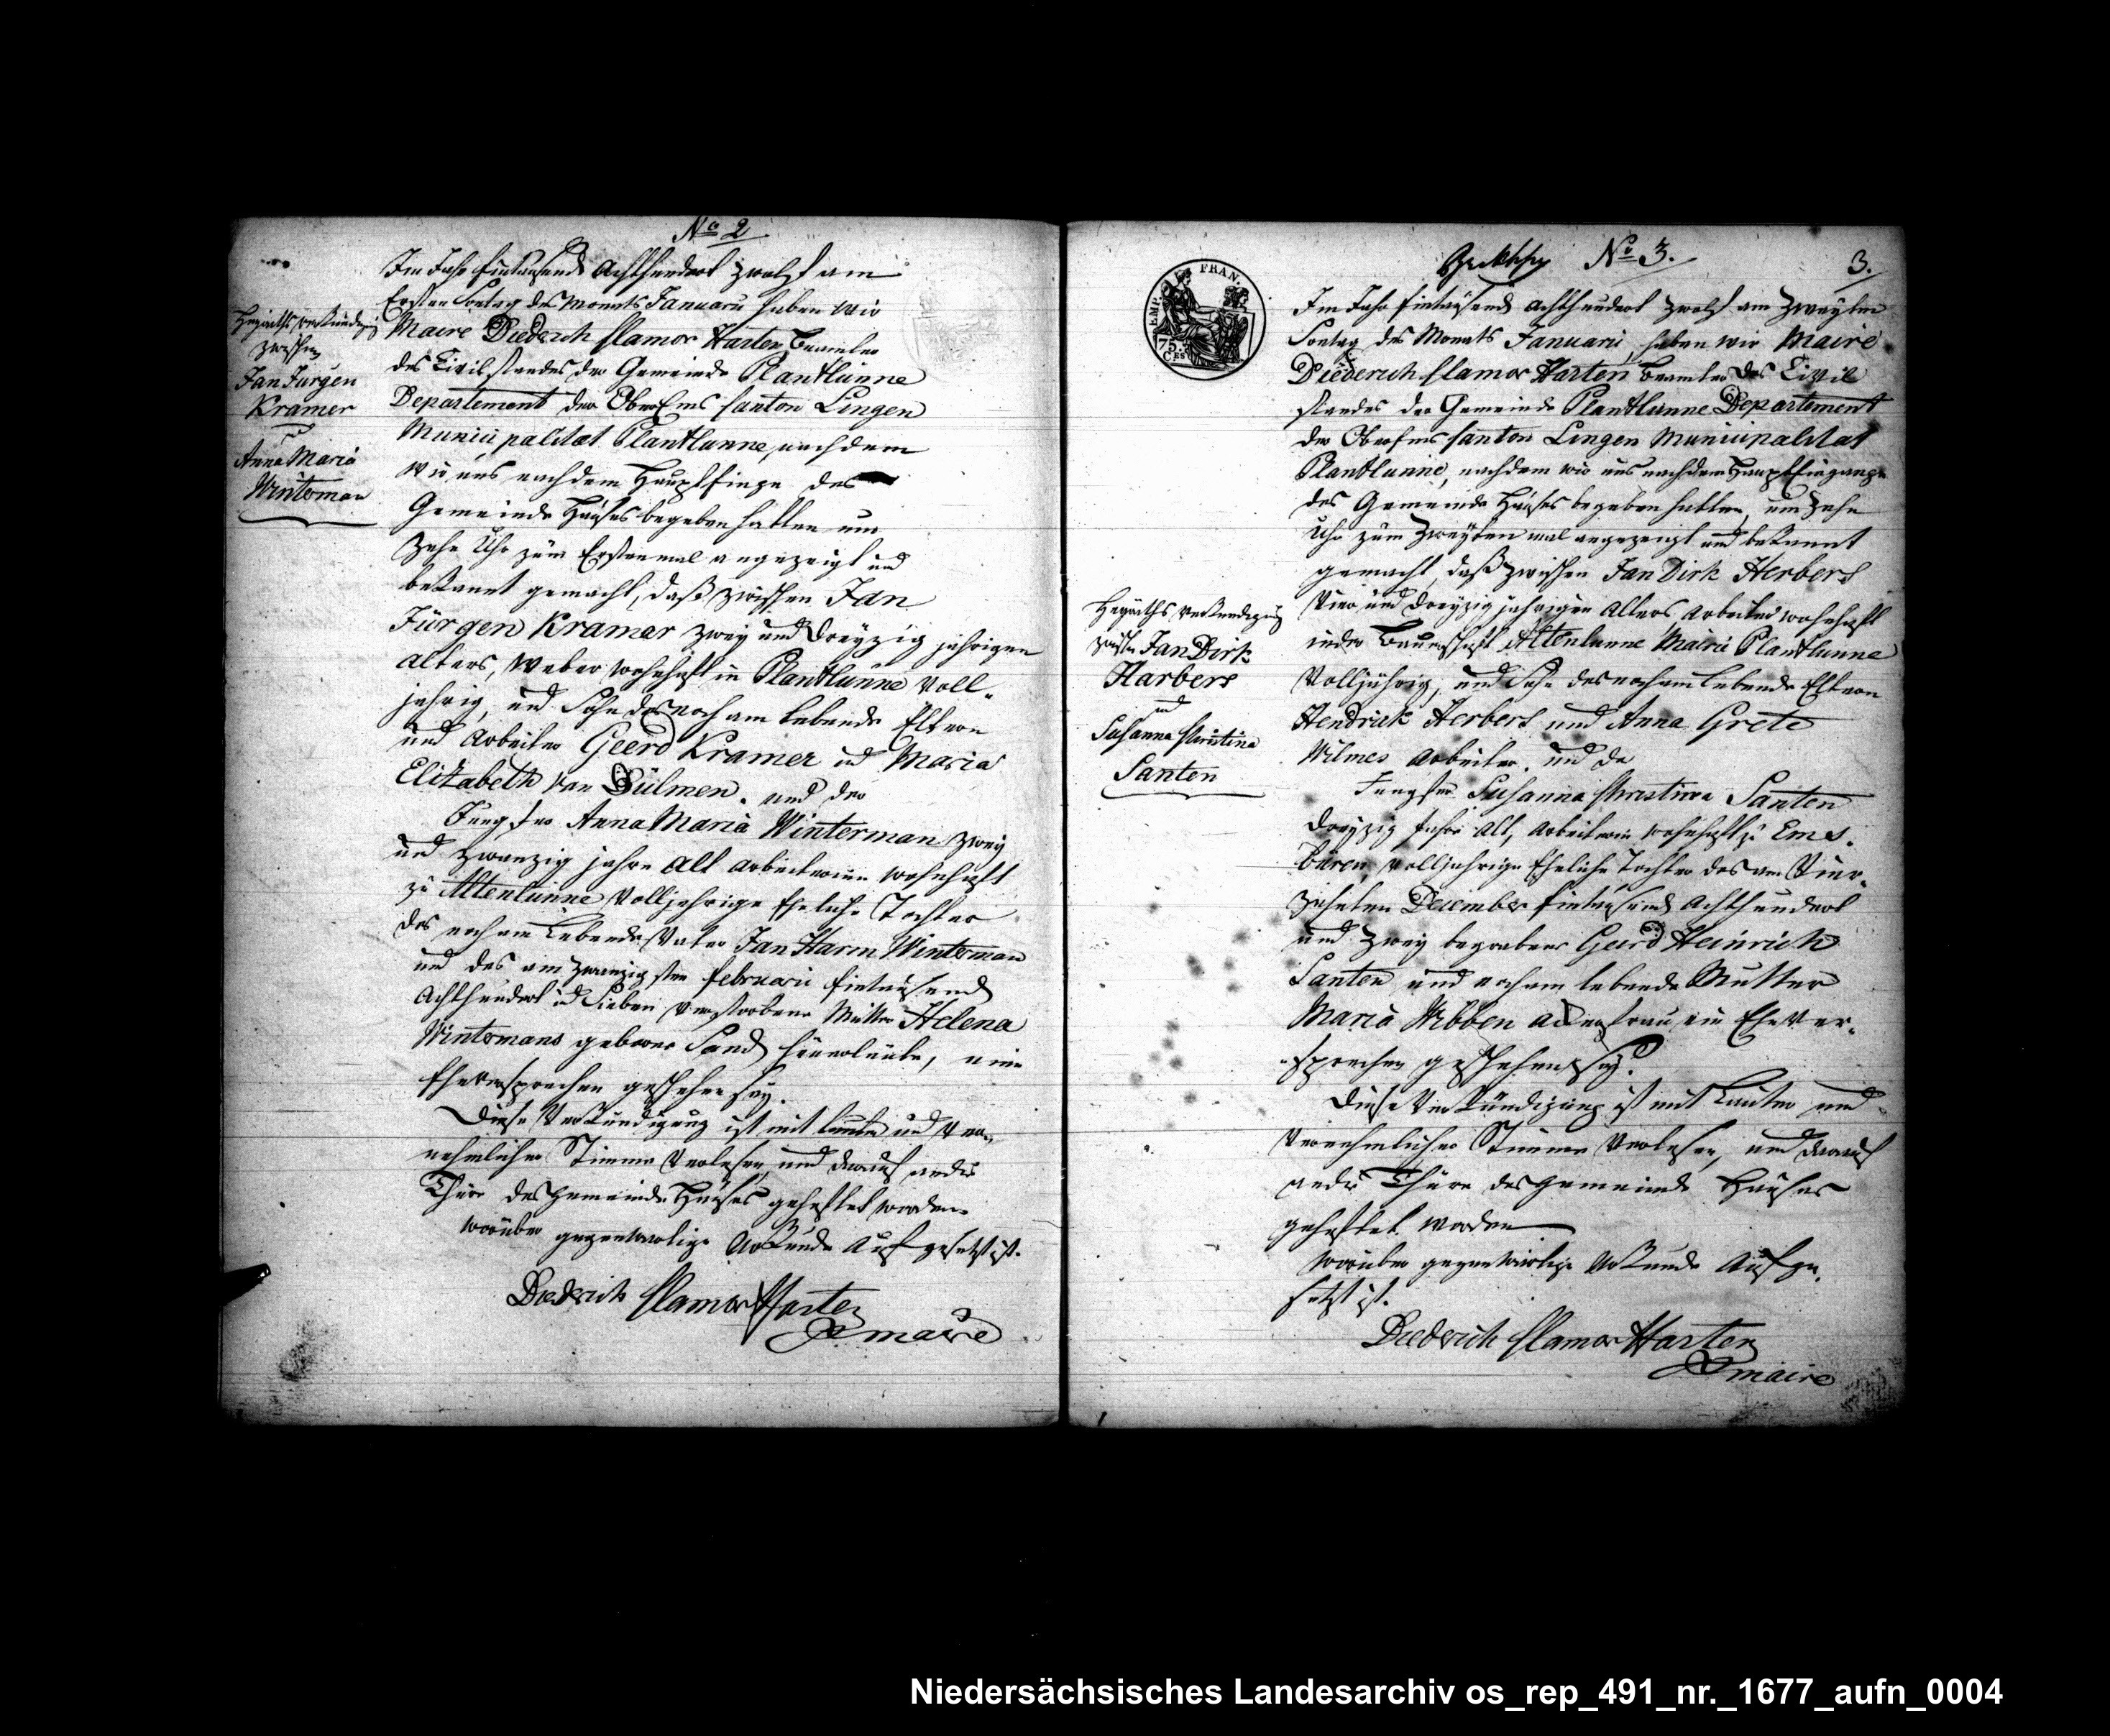 No 2
Im Jahr Eintausend Achthundert zwolf am
Ersten Sontag des Monats Januarii haben wir
Maire Diederich Clamor Harten Beamter
des Civilstandes der Gemeinde Plantlünne
Departement der OberEms Canton Lingen
Municipalitat Plantlunne, nachdem
wir uns nach dem Haupt Eingange des
Gemeinde Hauses begeben hatten um
Zehn Uhr zum Erstenmal angezeigt und
bekannt gemacht, daß zwischen Jan
Jürgen Kramer zwey und Dreyzig jahrigen
alters, Weber wohnhaft in Plantlünne Voll-
jahrig, und Sohn der noch am lebende Eltern
und Arbeiter Geerd Kramer und Maria
Elizabeth van Bülmen. und der
Jungfer Anna Maria Winterman zwey
und zwanzig jahre alt arbeiterinn wohnhaft
zu Altenlünne Volljahrige Eheliche Tochter
des noch am Lebende Vater Jan Harm Winterman
und des am zwanzigsten februarii Eintausend
Achthundert und Sieben verstorbene Mutter Helena
Wintermans geborne Sand Heuerleute, eine
Eheversprechen geschehen sey.
Diese Verkündigung ist mit lauter und ver-
nehmlicher Stimme verlesen, und darauf an der
Thüre des Gemeinde Hauses geheftet worden
worüber gegenwartige Urkunde aufgesetzt ist.
Diederich Clamor Harten
maire
Heyraths verkundigung
zwischen
Jan Jurgen
Kramer
und
Anna Maria
Winterman
EMP. FRAN.
75.
CES
No 3.
3.
Im Jahr Eintausend Achthundert zwolf am zweyten
Sontag des Monats Januarii, haben wir Maire
Diederich Clamor Harten Beamter des Civil
standes der Gemeinde Plantlunne Departement
der OberEms Canton Lingen Municipalitat
Plantlunne, nachdem wir uns nach dem Haupt Eingange
des Gemeinde Hauses begeben hatten, um Zehn
Uhr zum Zweyten mal angezeigt und bekannt
gemacht, daß zwischen Jan Dirk Herbers
Vier und Dreyzig jahrigen Alters, Arbeiter wohnhaft
in der Baurschaft Altenlunne Mairie Plantlunne
Volljährig, und Sohn der noch am lebende Eltern
Hendrick Herbers und Anna Grete
Wilmes Arbeiter. und der
Jungfer Susanna Christina Santen
Dreyzig Jahr alt, Arbeiterin wohnhaft zu Ems-
büren, volljahrige Eheliche Tochter des am Vier-
zehnten December Eintausend Achthundert
und zwey begrabene Geerd Heinrich
Santen und noch am lebende Mutter
Maria Wibben Ackersfrau, ein Ehever-
sprechen geschehen sey.
Diese Verkündigung ist mit Lauter und
Vernehmlicher Stimme verlesen, und darauf
an der Thüre des Gemeinde Hauses
geheftet worden
worüber gegenwärtige Urkunde Aufge-
setzt ist.
Diederich Clamor Harten
maire
Heyraths verkundigung
zwischen Jan Dirk
Harbers
und
Susanna Christina
Santen
Niedersächsisches Landesarchiv os_rep_491_nr._1677_aufn_0004